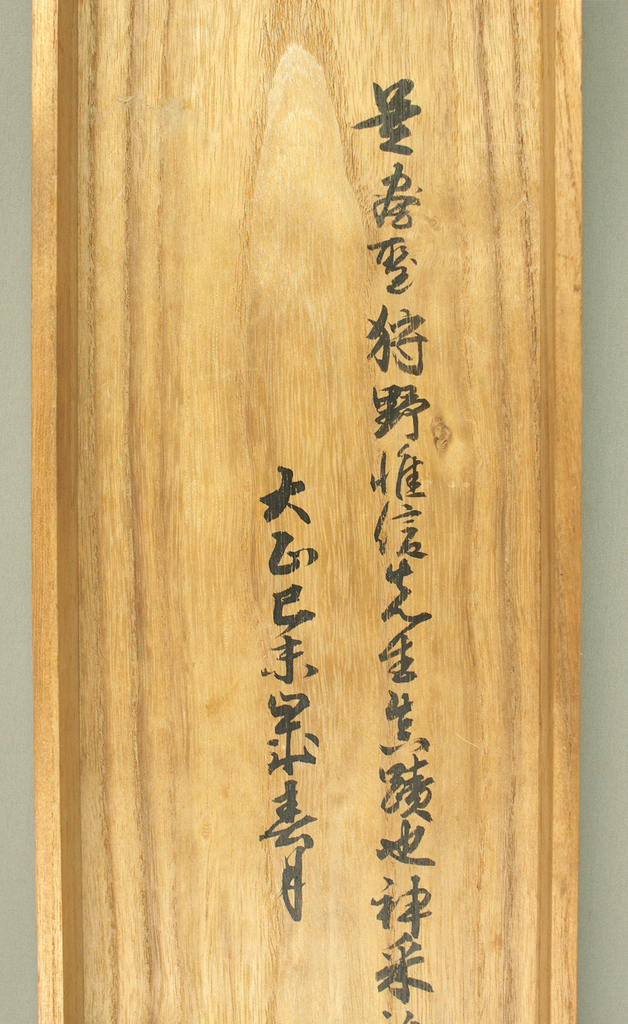 是画聖狩野惟信先生真蹟也神采
大正己未歳春月